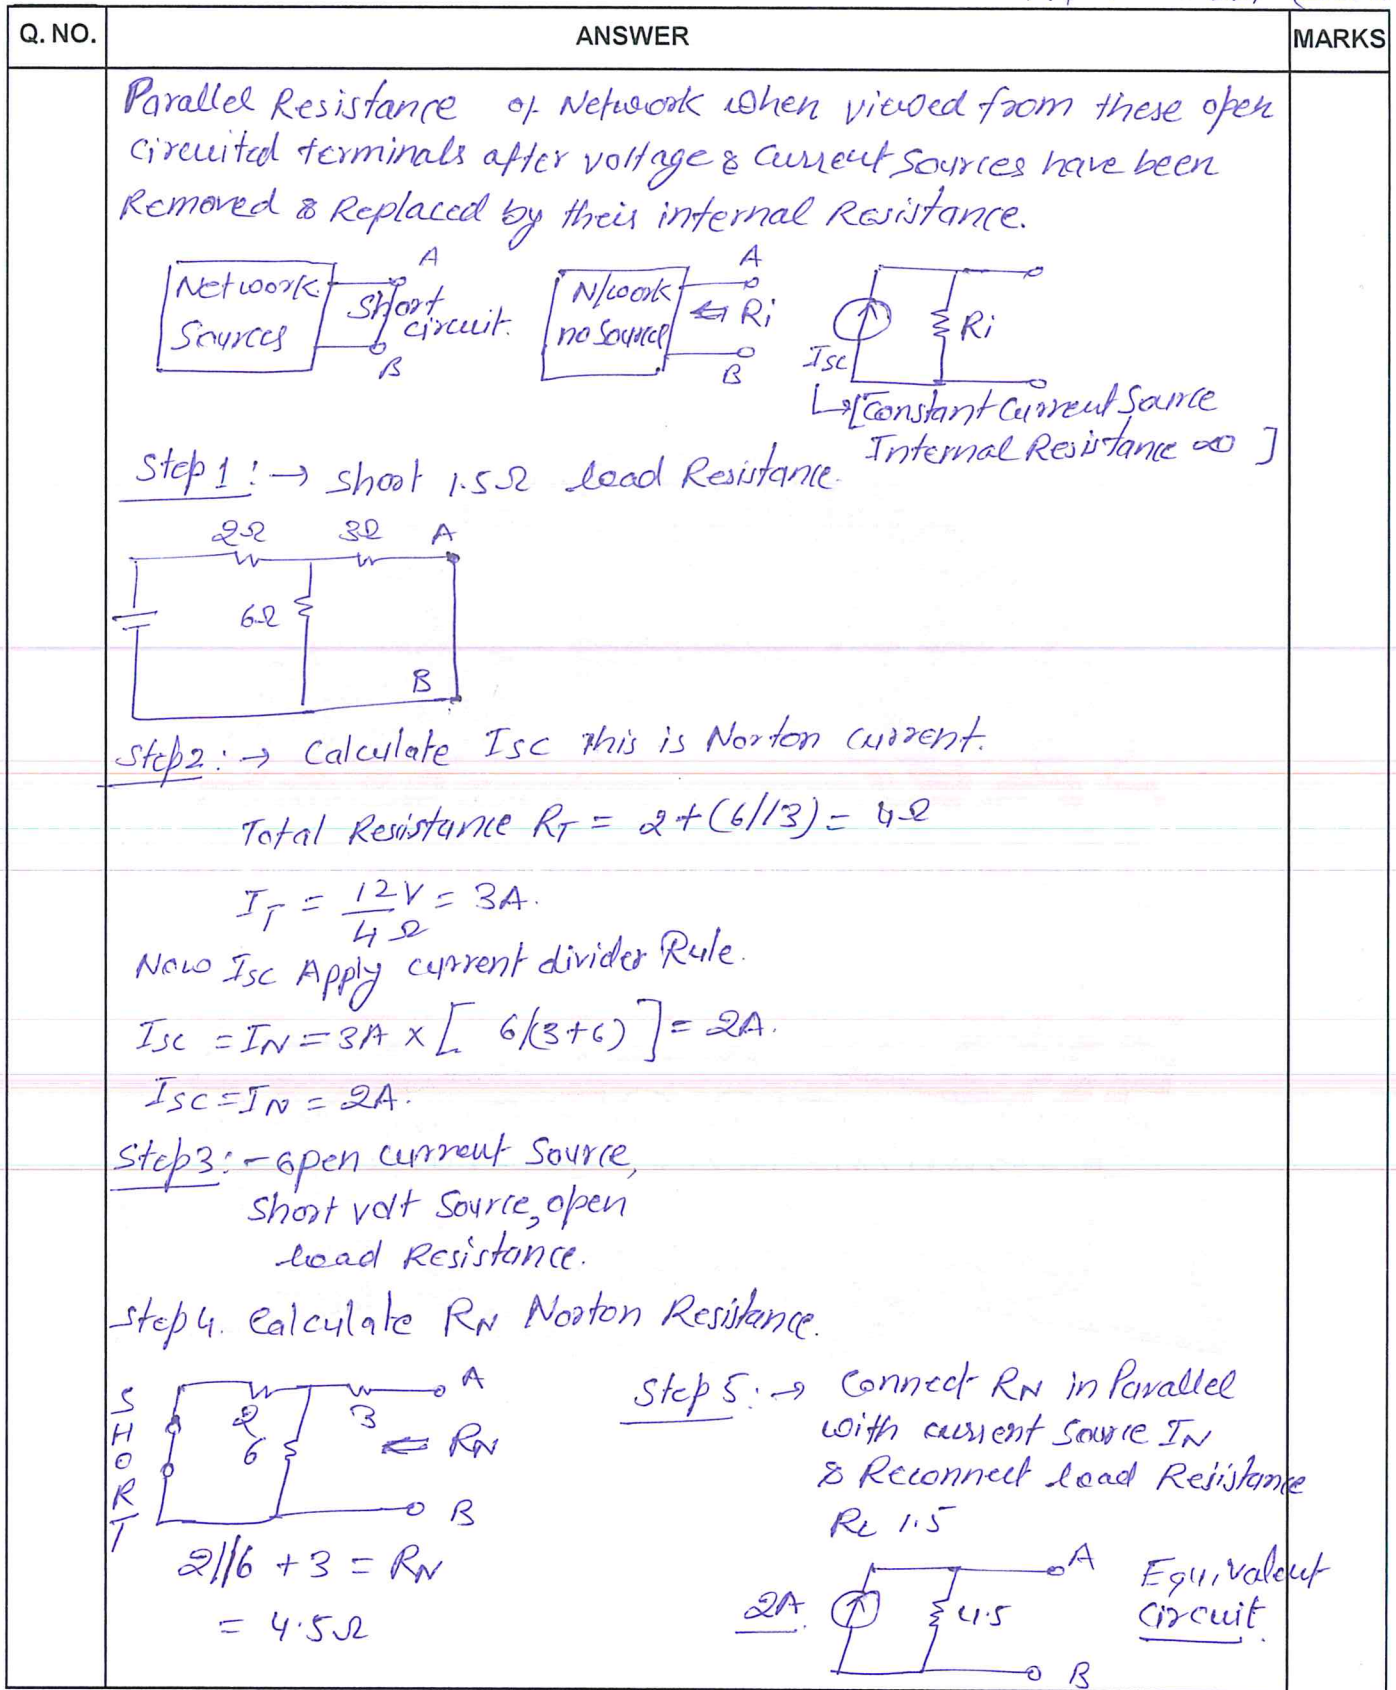 Q. NO. ANSWER MARKS
Parallel Resistance of Network when viewed from these open
circuited terminals after voltage & current sources have been
Removed & Replaced by their internal Resistance.
Network Sources A Short circuit. B
N/work no source A ⇐ Ri B
Isc Ri
↳ [Constant current Source
Internal Resistance ∞ ]
Step 1 :→ Short 1.5Ω load Resistance.
2Ω 3Ω A
6Ω
B
Step2 :→ Calculate Isc this is Norton current.
Total Resistance RT = 2+(6//3) = 4Ω
IT = 12V/4Ω = 3A.
Now Isc Apply current divider Rule.
Isc = IN = 3A × [ 6/(3+6) ] = 2A.
Isc = IN = 2A.
Step3 :- open current Source,
Short volt Source, open
load Resistance.
Step 4. Calculate RN Norton Resistance.
SHORT 2 3 A
6 ⇐ RN
B
2//6 + 3 = RN
= 4.5Ω
Step 5 :→ Connect RN in Parallel
with current Source IN
& Reconnect load Resistance
RL 1.5
2A. 4.5 A
B
Equivalent
Circuit.